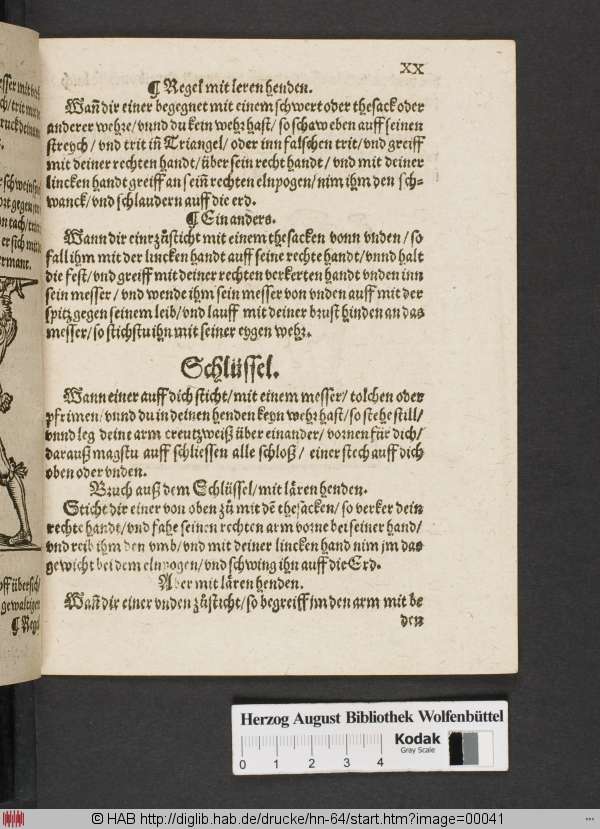 XX
¶ Regel mit leren henden.
Wañ dir einer begegnet mit einem schwert oder thesack oder
anderer wehre/ vnnd du kein wehr hast/ so schaw eben auff seinen
streych/ vnd trit iñ Triangel/ oder inn falschen trit/ vnd greiff
mit deiner rechten handt/ über sein recht handt/ vnd mit deiner
lincken handt greiff an seiñ rechten elnpogen/ nim ihm den sch-
wanck/ vnd schlaudern auff die erd.
¶ Ein anders.
Wann dir einr zůsticht mit einem thesacken vonn vnden/ so
fall ihm mit der lincken handt auff seine rechte handt/ vnnd halt
die fest/ vnd greiff mit deiner rechten verkerten handt vnden inn
sein messer/ vnd wende ihm sein messer von vnden auff mit der
spitz gegen seinem leib/ vnd lauff mit deiner brust hinden an das
messer/ so stichstu ihn mit seiner eygen wehr.
Schlüssel.
Wann einer auff dich sticht/ mit einem messer/ tolchen oder
pfrimen/ vnnd du in deinen henden keyn wehr hast/ so stehe still/
vnnd leg deine arm creutzweiß über einander/ vornen für dich/
darauß magstu auff schliessen alle schloß/ einer stech auff dich
oben oder vnden.
Bruch auß dem Schlüssel/ mit lären henden.
Sticht dir einer von oben zů mit dē thesacken/ so verker dein
rechte handt/ vnd fahe seinen rechten arm vorne bei seiner hand/
vnd reib ihm den vmb/ vnd mit deiner lincken hand nim jm das
gewicht bei dem elnpogen/ vnd schwing ihn auff die Erd.
Aber mit lären henden.
Wañ dir einer vnden zůsticht/ so begreiff im den arm mit be
den
¶ Regel
Herzog August Bibliothek Wolfenbüttel
0 1 2 3 4
Kodak
Gray Scale
© HAB http://diglib.hab.de/drucke/hn-64/start.htm?image=00041